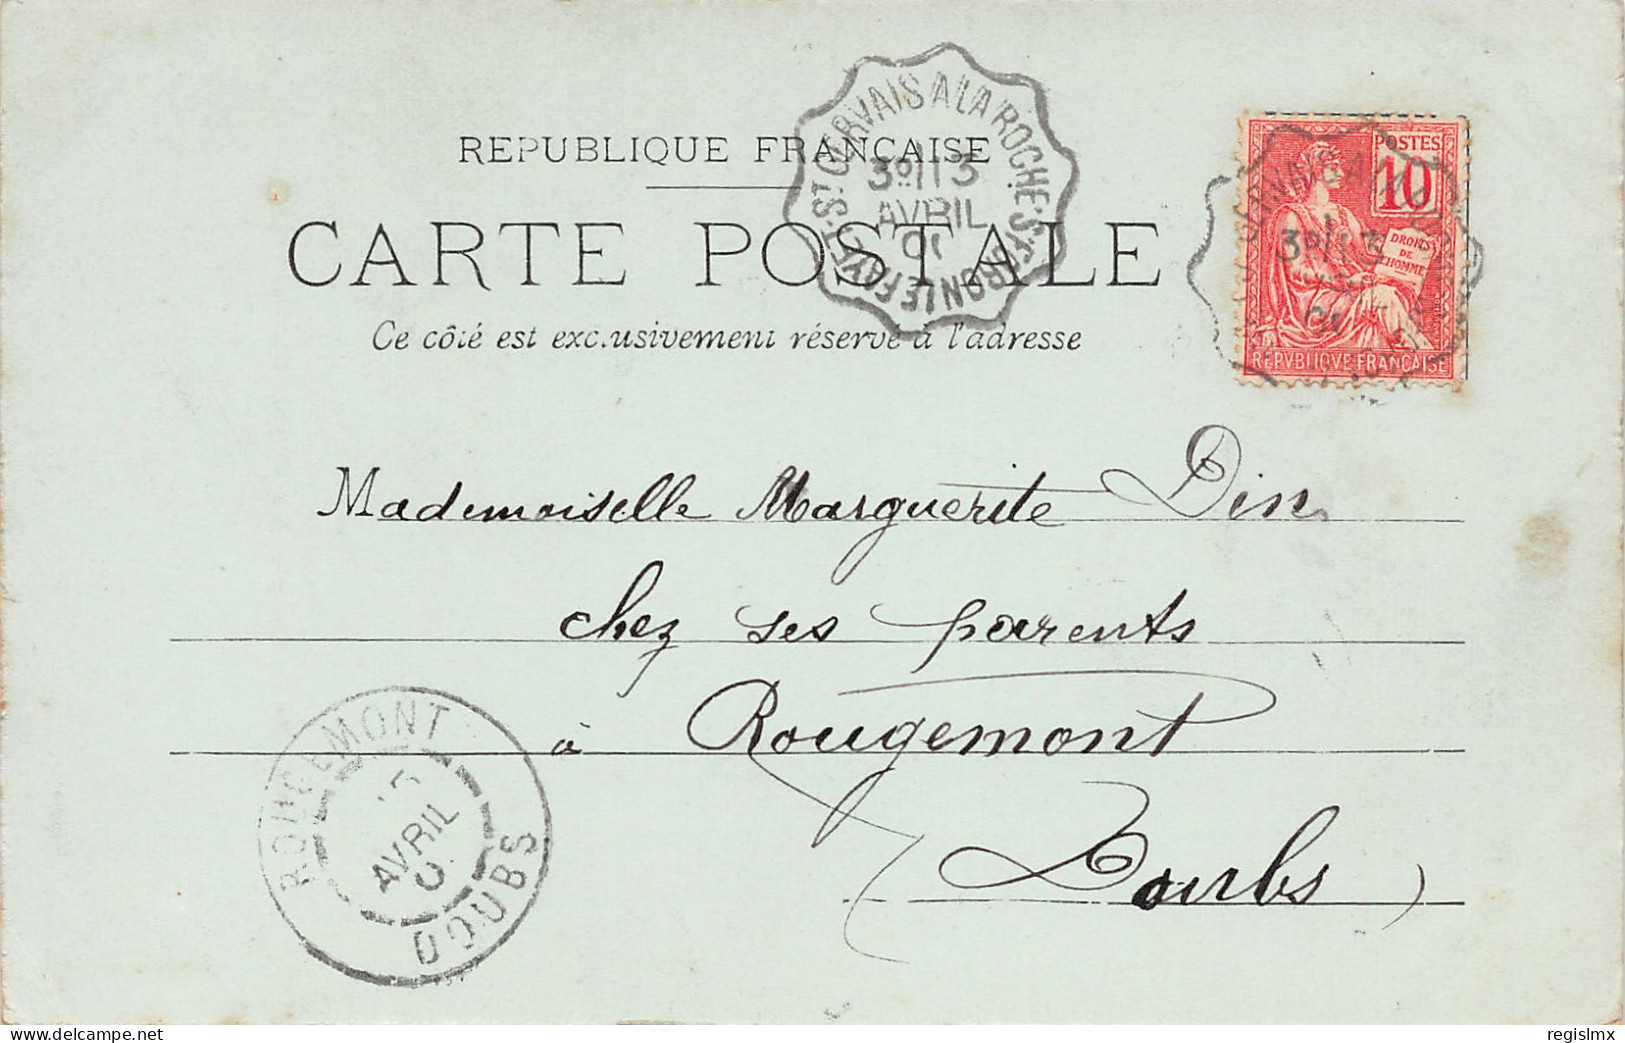 REPUBLIQUE FRANÇAISE
CARTE POSTALE
Ce côté est exclusivement réservé à l'adresse
ST GERVAIS A LA ROCHE-S-FORON LE FAYET
3º 13
AVRIL
01
POSTES
10
DROITS
DE
L'HOMME
REPVBLIQVE FRANÇAISE
3º 13
01
Mademoiselle Marguerite Din
chez ses parents
à Rougemont
(Doubs)
ROUGEMONT
AVRIL
DOUBS
delcampe.net
regislmx